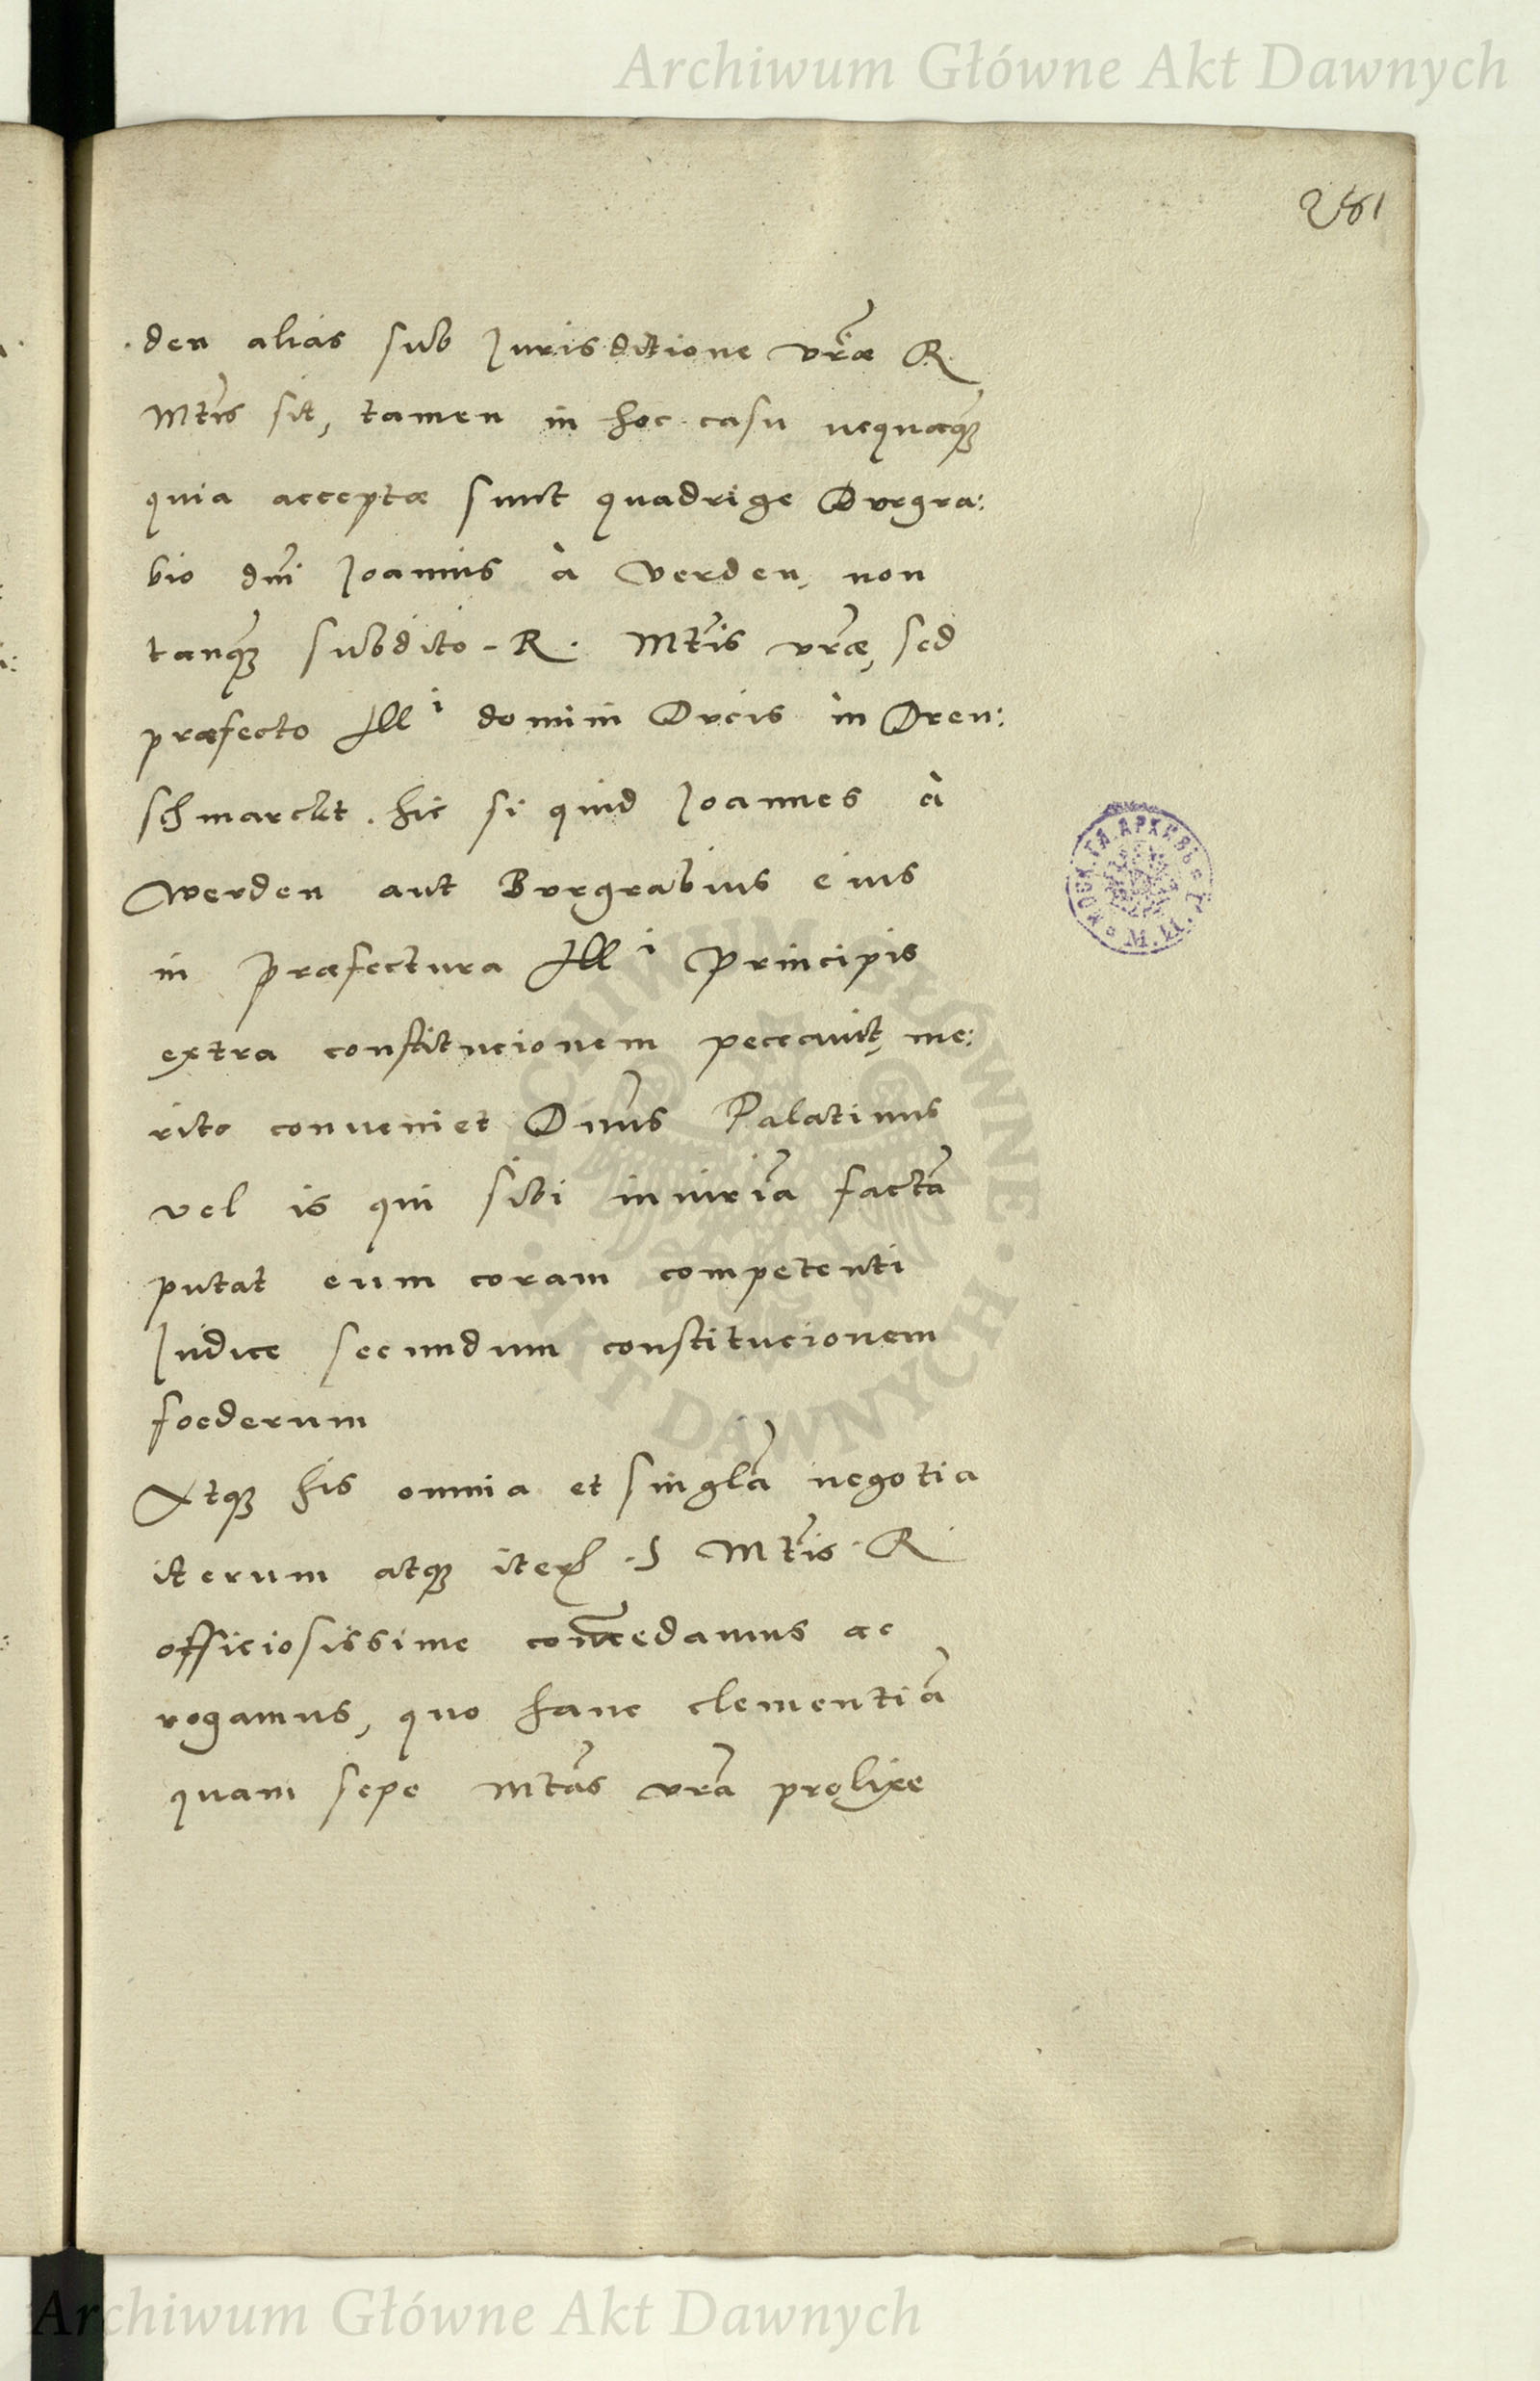 Archiwum Główne Akt Dawnych
281
den alias sub Jurisditione vr̃æ R
Mt̃is sit, tamen in hoc casu nequaq̃
quia acceptæ sunt quadrige Burgra:
bio dñi Joannis à Verden, non
tanq̃ subdito R. Mt̃is vr̃æ, sed
præfecto Ill i domini Ducis in Preu:
schmarckt. hic si quid Joannes à
Werden aut Burgrabius eius
in præfectura Ill i Principis
extra constitucionem peccauit, me:
rito conueniet Dnũs Palatinus
vel is qui sibi iniuriã factã
putat eum coram competenti
Judice secundum constitucionem
foederum
Atq3 his omnia et singlã negotia
iterum atq3 iter .S Mt̃is R
officiosissime com̃edamus ac
rogamus, quo hanc clementiã
quam sepe Mtãs vrã prolixe
МОСК. ГЛ. АРХИВЪ
М.И.
ARCHIWUM GŁÓWNE
AKT DAWNYCH
Archiwum Główne Akt Dawnych